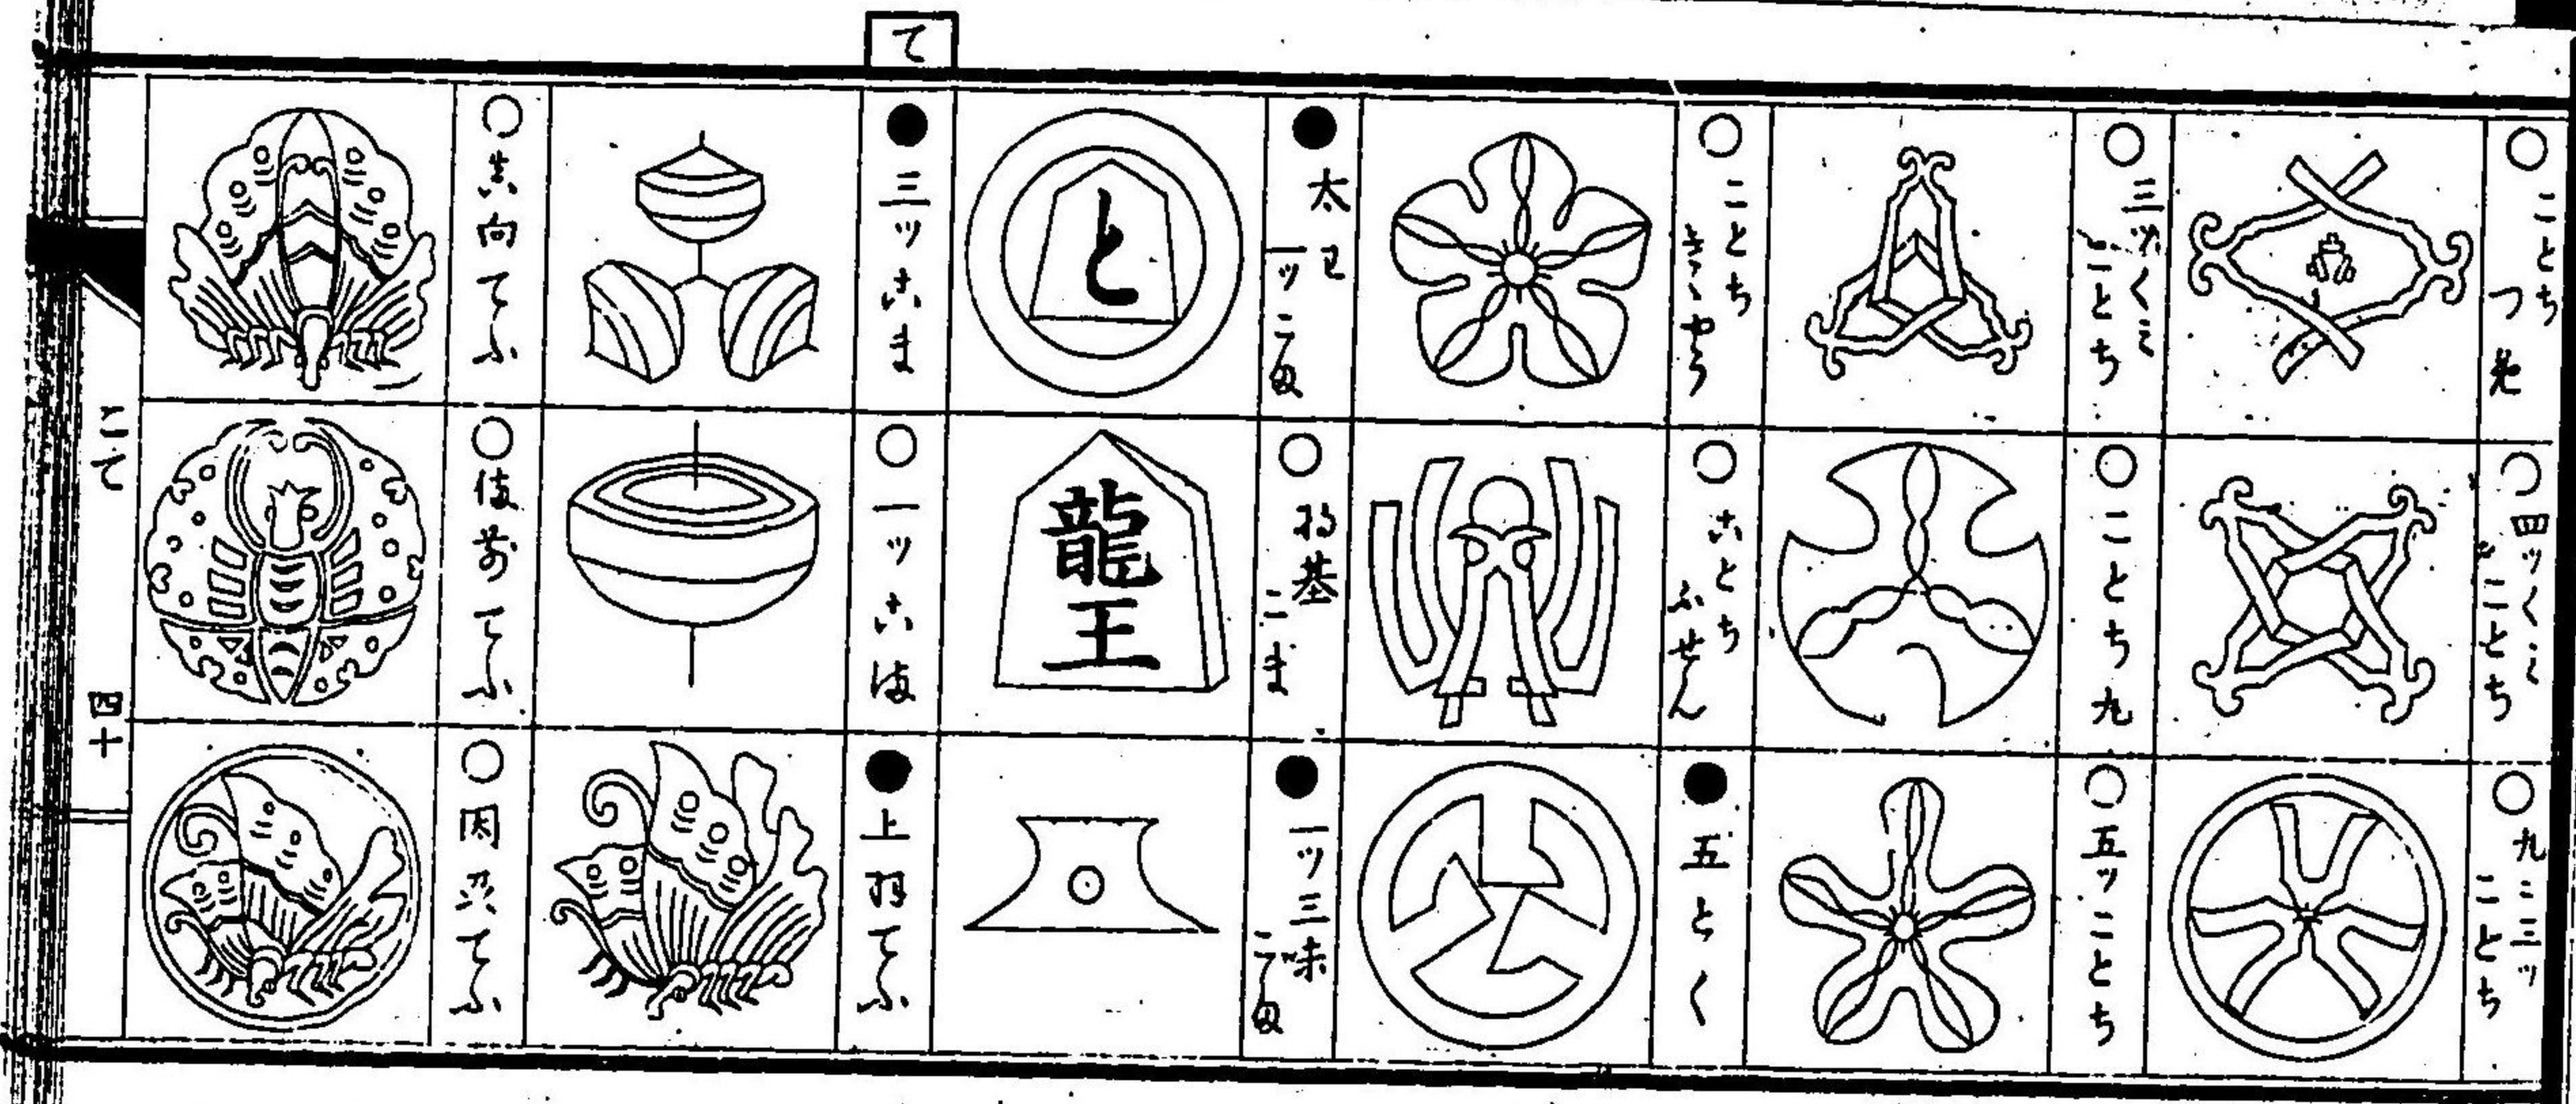 て
○ことち
つ
○四ツくミ
ことち
○丸ニ三ツ
ことち
○三ツくミ
ことち
○ことち丸
○五ツことち
○ことち
きゝやう
○ことち
ふせん
●五とく
●太
一ツこま
と
○将棊
こま
龍王
●一ツ三味
こま
●三ツこま
○一ツこま
●上羽てふ
○真向てふ
○備前てふ
○因州てふ
こて
四十